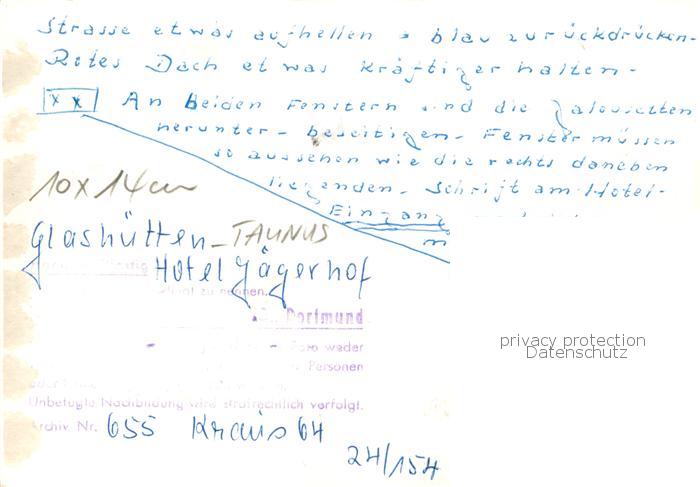 Strasse etwas aufhellen + blau zurückdrücken-
Rotes Dach etwas kräftiger halten-
xx An beiden Fenstern sind die Jalousetten
herunter - beseitigen - Fenster müssen
so aussehen wie die rechts daneben
liegenden. Schrift am Hotel-
Eingang
10 x 14 cm
Glashütten - TAUNUS
Hotel Jägerhof
zu nennen.
Dortmund
weder
Personen
Unbefugte Nachbildung wird strafrechtlich verfolgt.
Archiv Nr. 655 Kraus 64
24/154
privacy protection
Datenschutz